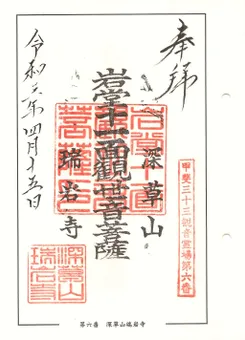 奉拝
甲斐三十三観音霊場第六番
深草山
岩堂十一面觀世音菩薩
瑞岩寺
令和 年四月十五日
深草山
瑞岩寺
第六番 深草山瑞岩寺